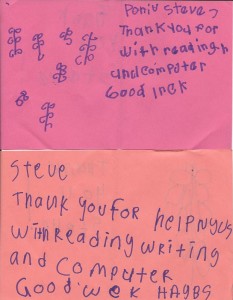 Steve
Thank you for
with reading
and computer
Good luck
Steve
Thank you for helpnyus
with reading writing
and computer
Good wek